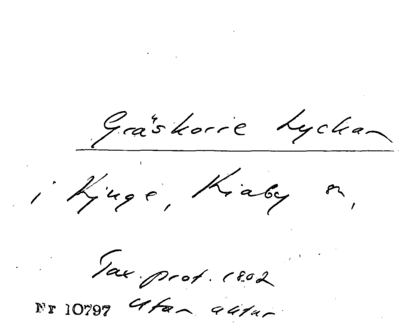 Gräskorie Lyckan
i Kjuge, Kiaby sn,
Tax. prot. 1802
Nr 10797 utan aktar